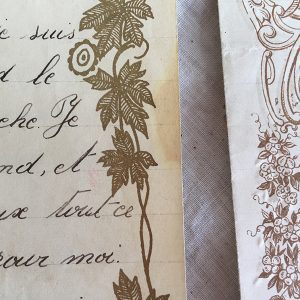 je suis
d le
che. Je
nd, et
ux tout ce
pour moi.